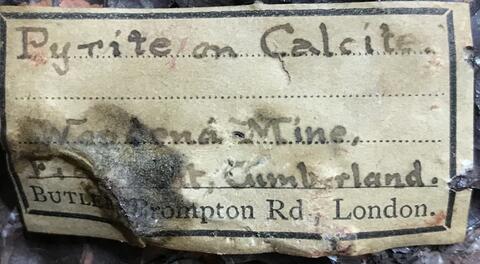 Pyrite on Calcite.
Mine,
Cumberland.
Brompton Rd., London.